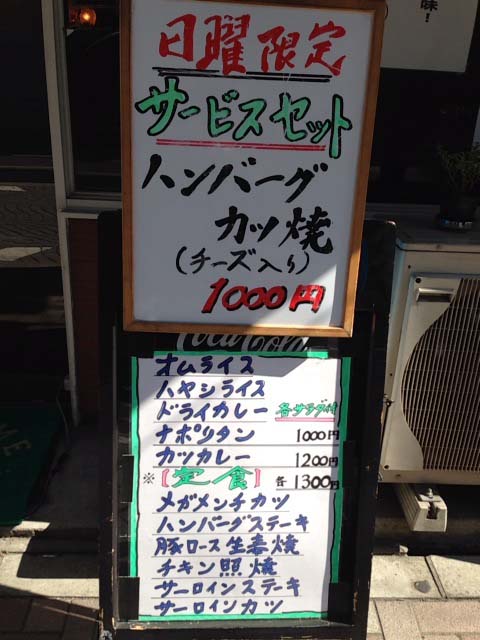 味！
日曜限定
サービスセット
ハンバーグ
カツ焼
（チーズ入り）
1000円
Coca-Cola
オムライス
ハヤシライス
ドライカレー 各サラダ付
ナポリタン 1000円
カツカレー 1200円
※【定食】各1300円
メガメンチカツ
ハンバーグステーキ
豚ロース生姜焼
チキン照焼
サーロインステーキ
サーロインカツ